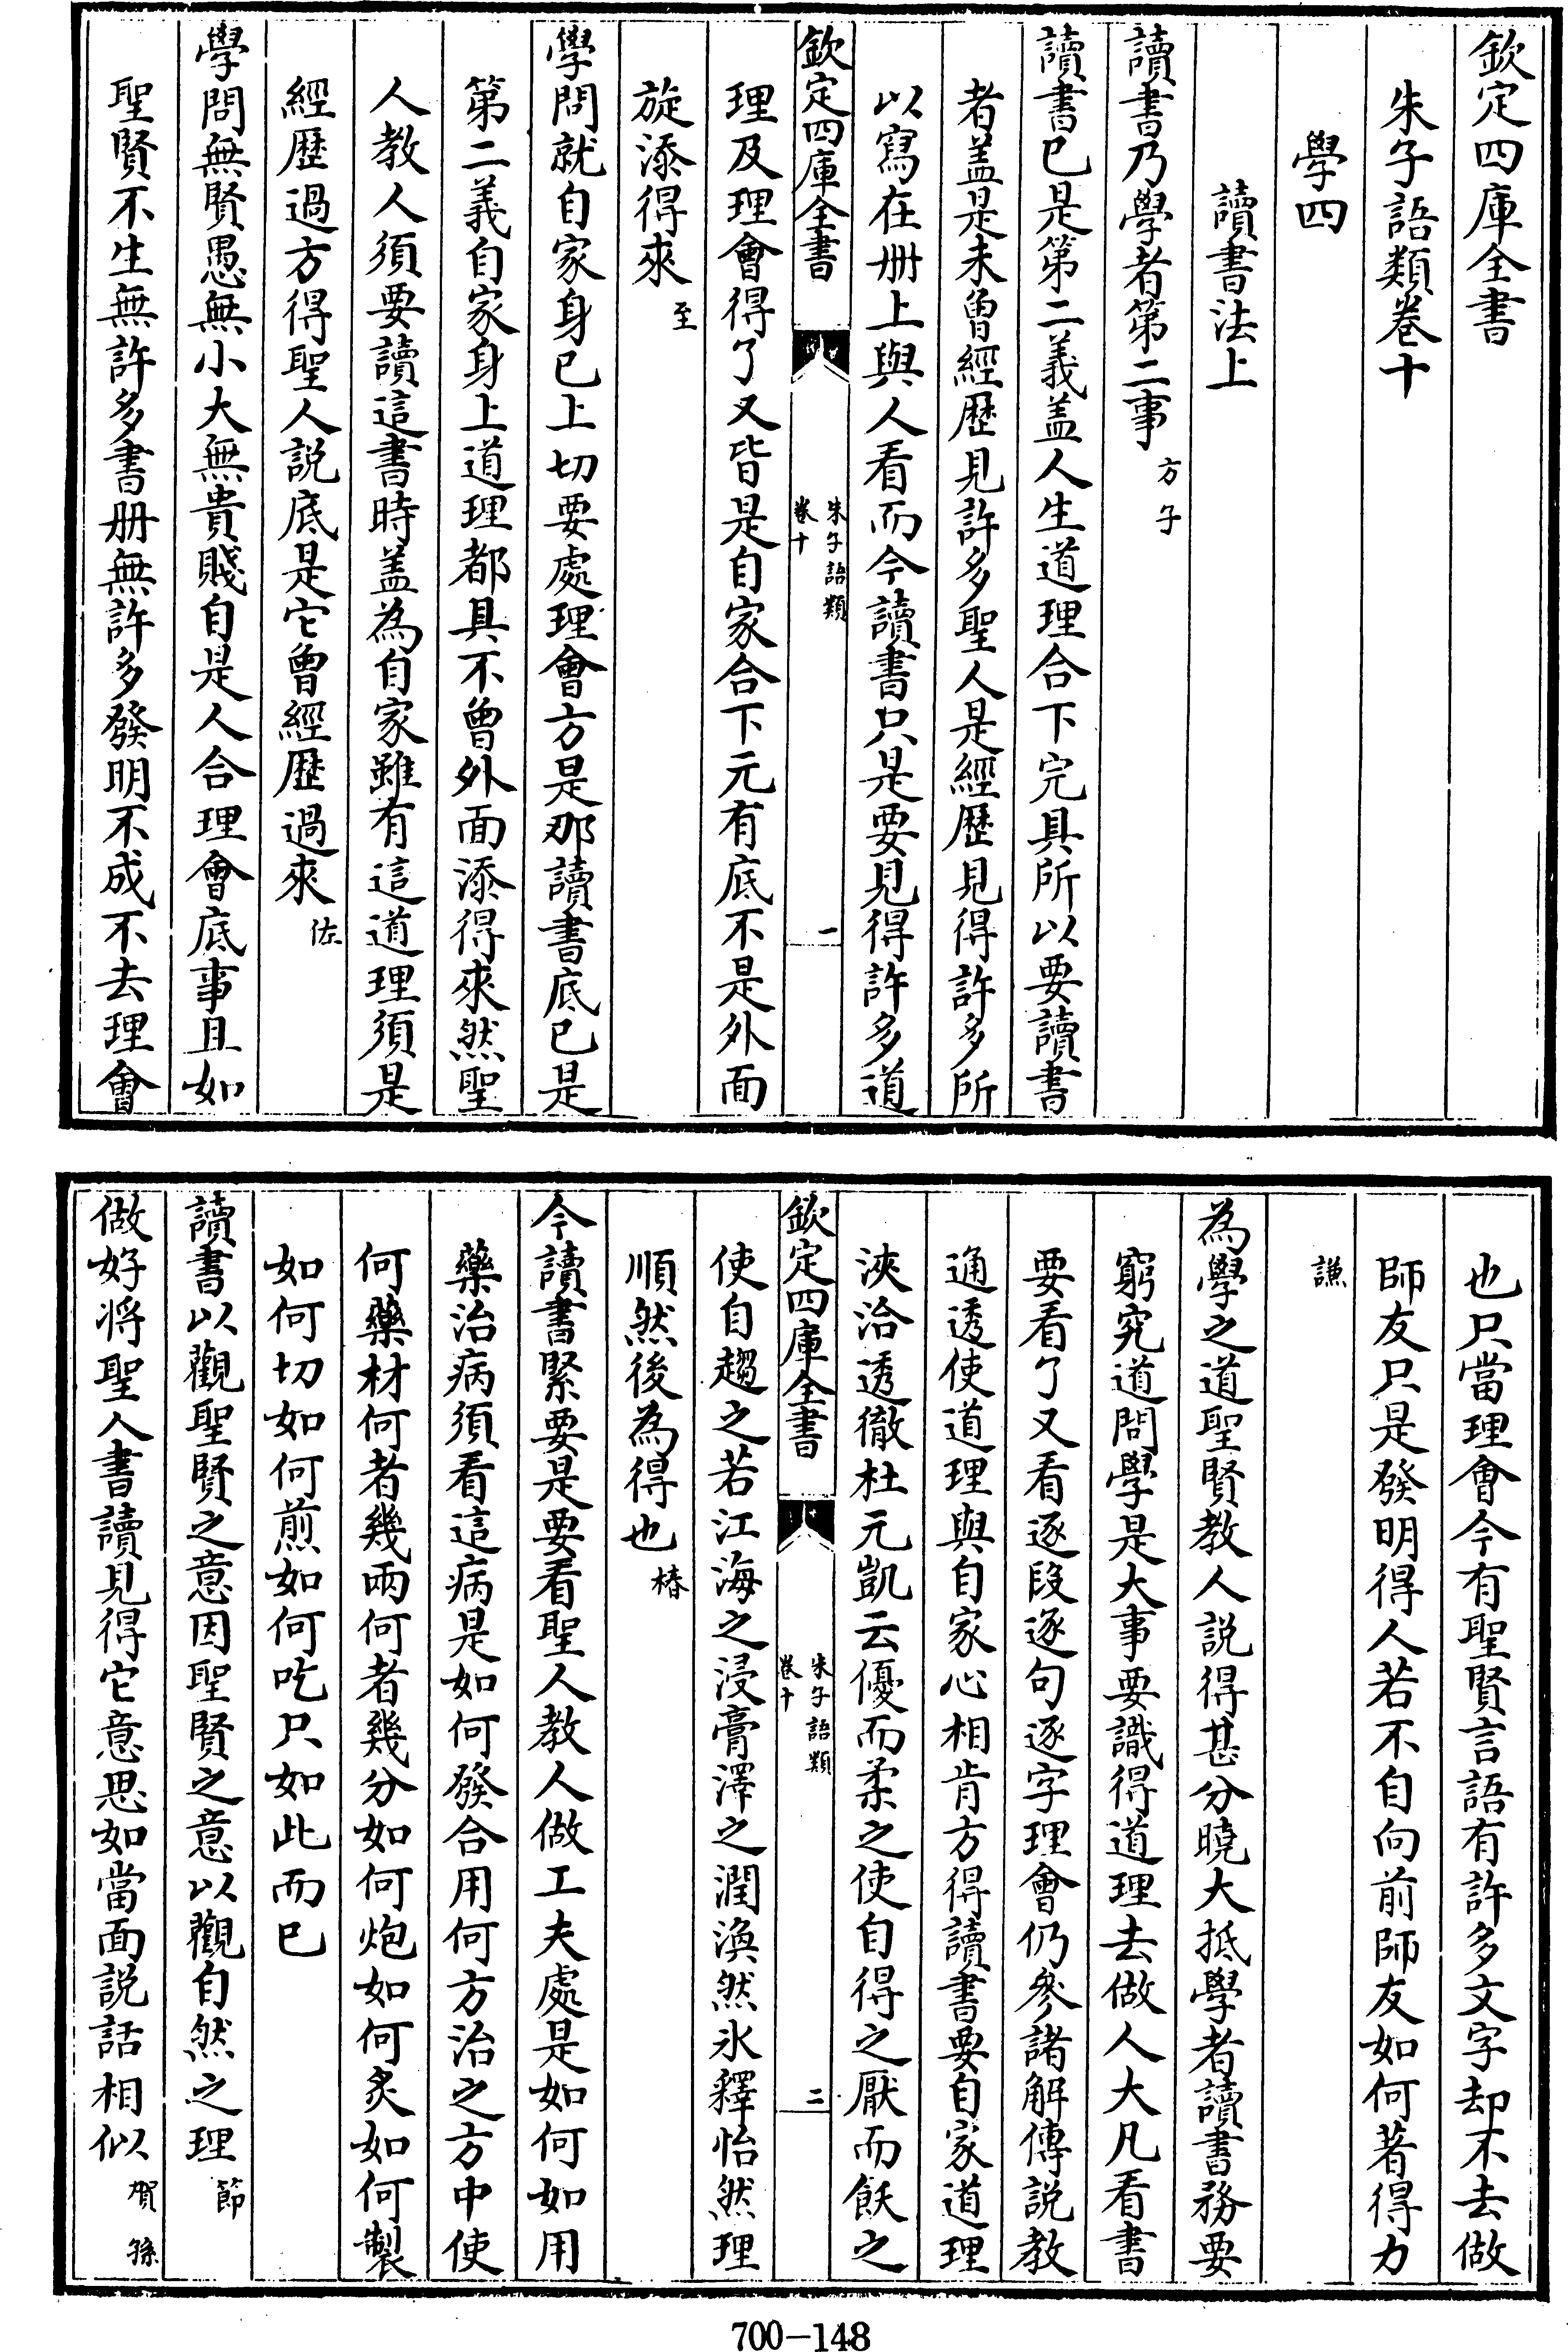 欽定四庫全書
朱子語類卷十
學四
讀書法上
讀書乃學者第二事方子
讀書已是第二義盖人生道理合下完具所以要讀書
者盖是未曾經歴見許多聖人是經歴見得許多所
以寫在冊上與人看而今讀書只是要見得許多道
欽定四庫全書
朱子語類
卷十
一
理及理會得了又皆是自家合下元有底不是外面
旋添得來至
學問就自家身已上切要處理會方是那讀書底已是
第二義自家身上道理都具不曾外面添得來然聖
人教人須要讀這書時盖為自家雖有這道理須是
經歴過方得聖人説底是它曾經歴過來佐
學問無賢愚無小大無貴賤自是人合理會底事且如
聖賢不生無許多書冊無許多發明不成不去理會
也只當理會今有聖賢言語有許多文字却不去做
師友只是發明得人若不自向前師友如何著得力
謙
為學之道聖賢教人説得甚分曉大抵學者讀書務要
窮究道問學是大事要識得道理去做人大凡看書
要看了又看逐段逐句逐字理會仍參諸解傳説教
通透使道理與自家心相肯方得讀書要自家道理
浹洽透徹杜元凱云優而柔之使自得之厭而飫之
欽定四庫全書
朱子語類
卷十
二
使自趨之若江海之浸膏澤之潤渙然氷釋怡然理
順然後為得也椿
今讀書緊要是要看聖人教人做工夫處是如何如用
藥治病須看這病是如何發合用何方治之方中使
何藥材何者幾兩何者幾分如何炮如何炙如何製
如何切如何煎如何吃只如此而已
讀書以觀聖賢之意因聖賢之意以觀自然之理節
做好將聖人書讀見得它意思如當面説話相似賀孫
700-148